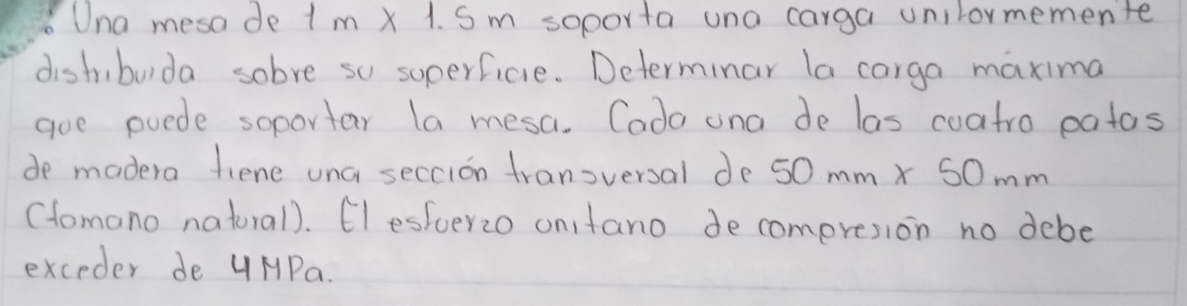 : Una mesa de 1 m x 1.5 m soporta una carga uniformemente
distribuida sobre su superficie. Determinar la carga máxima
que puede soportar la mesa. Cada una de las cuatro patas
de madera tiene una sección transversal de 50 mm x 50 mm
(tamano natural). El esfuerzo unitario de compresión no debe
exceder de 4 MPa.